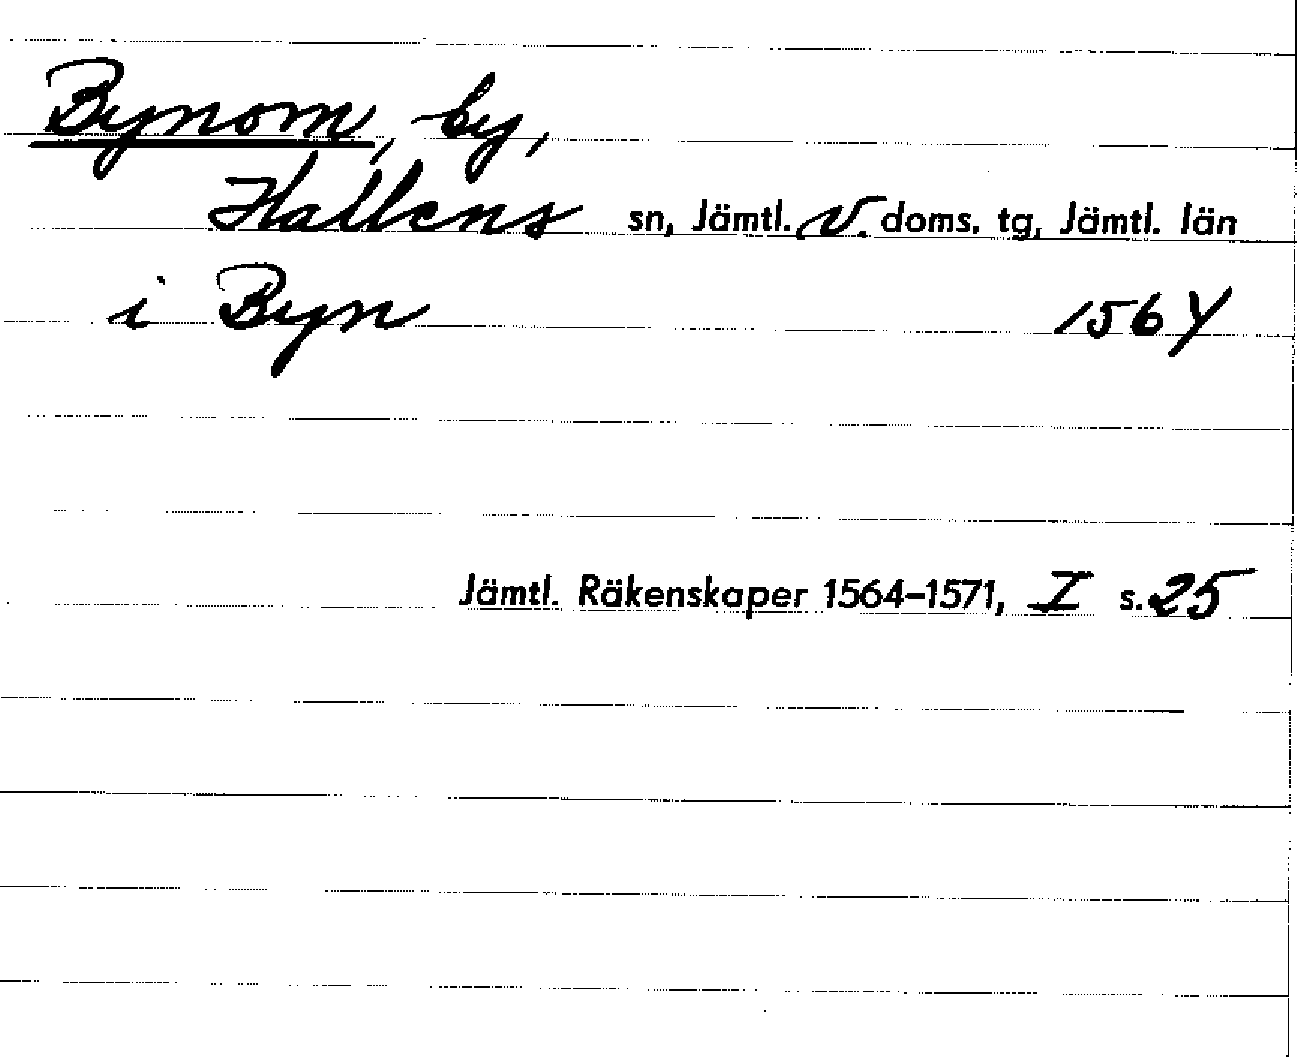 Bynom, by,
Hallens sn, Jämtl. v. doms. tg, Jämtl. län
i Byn 1564
Jämtl. Räkenskaper 1564-1571, I s. 25